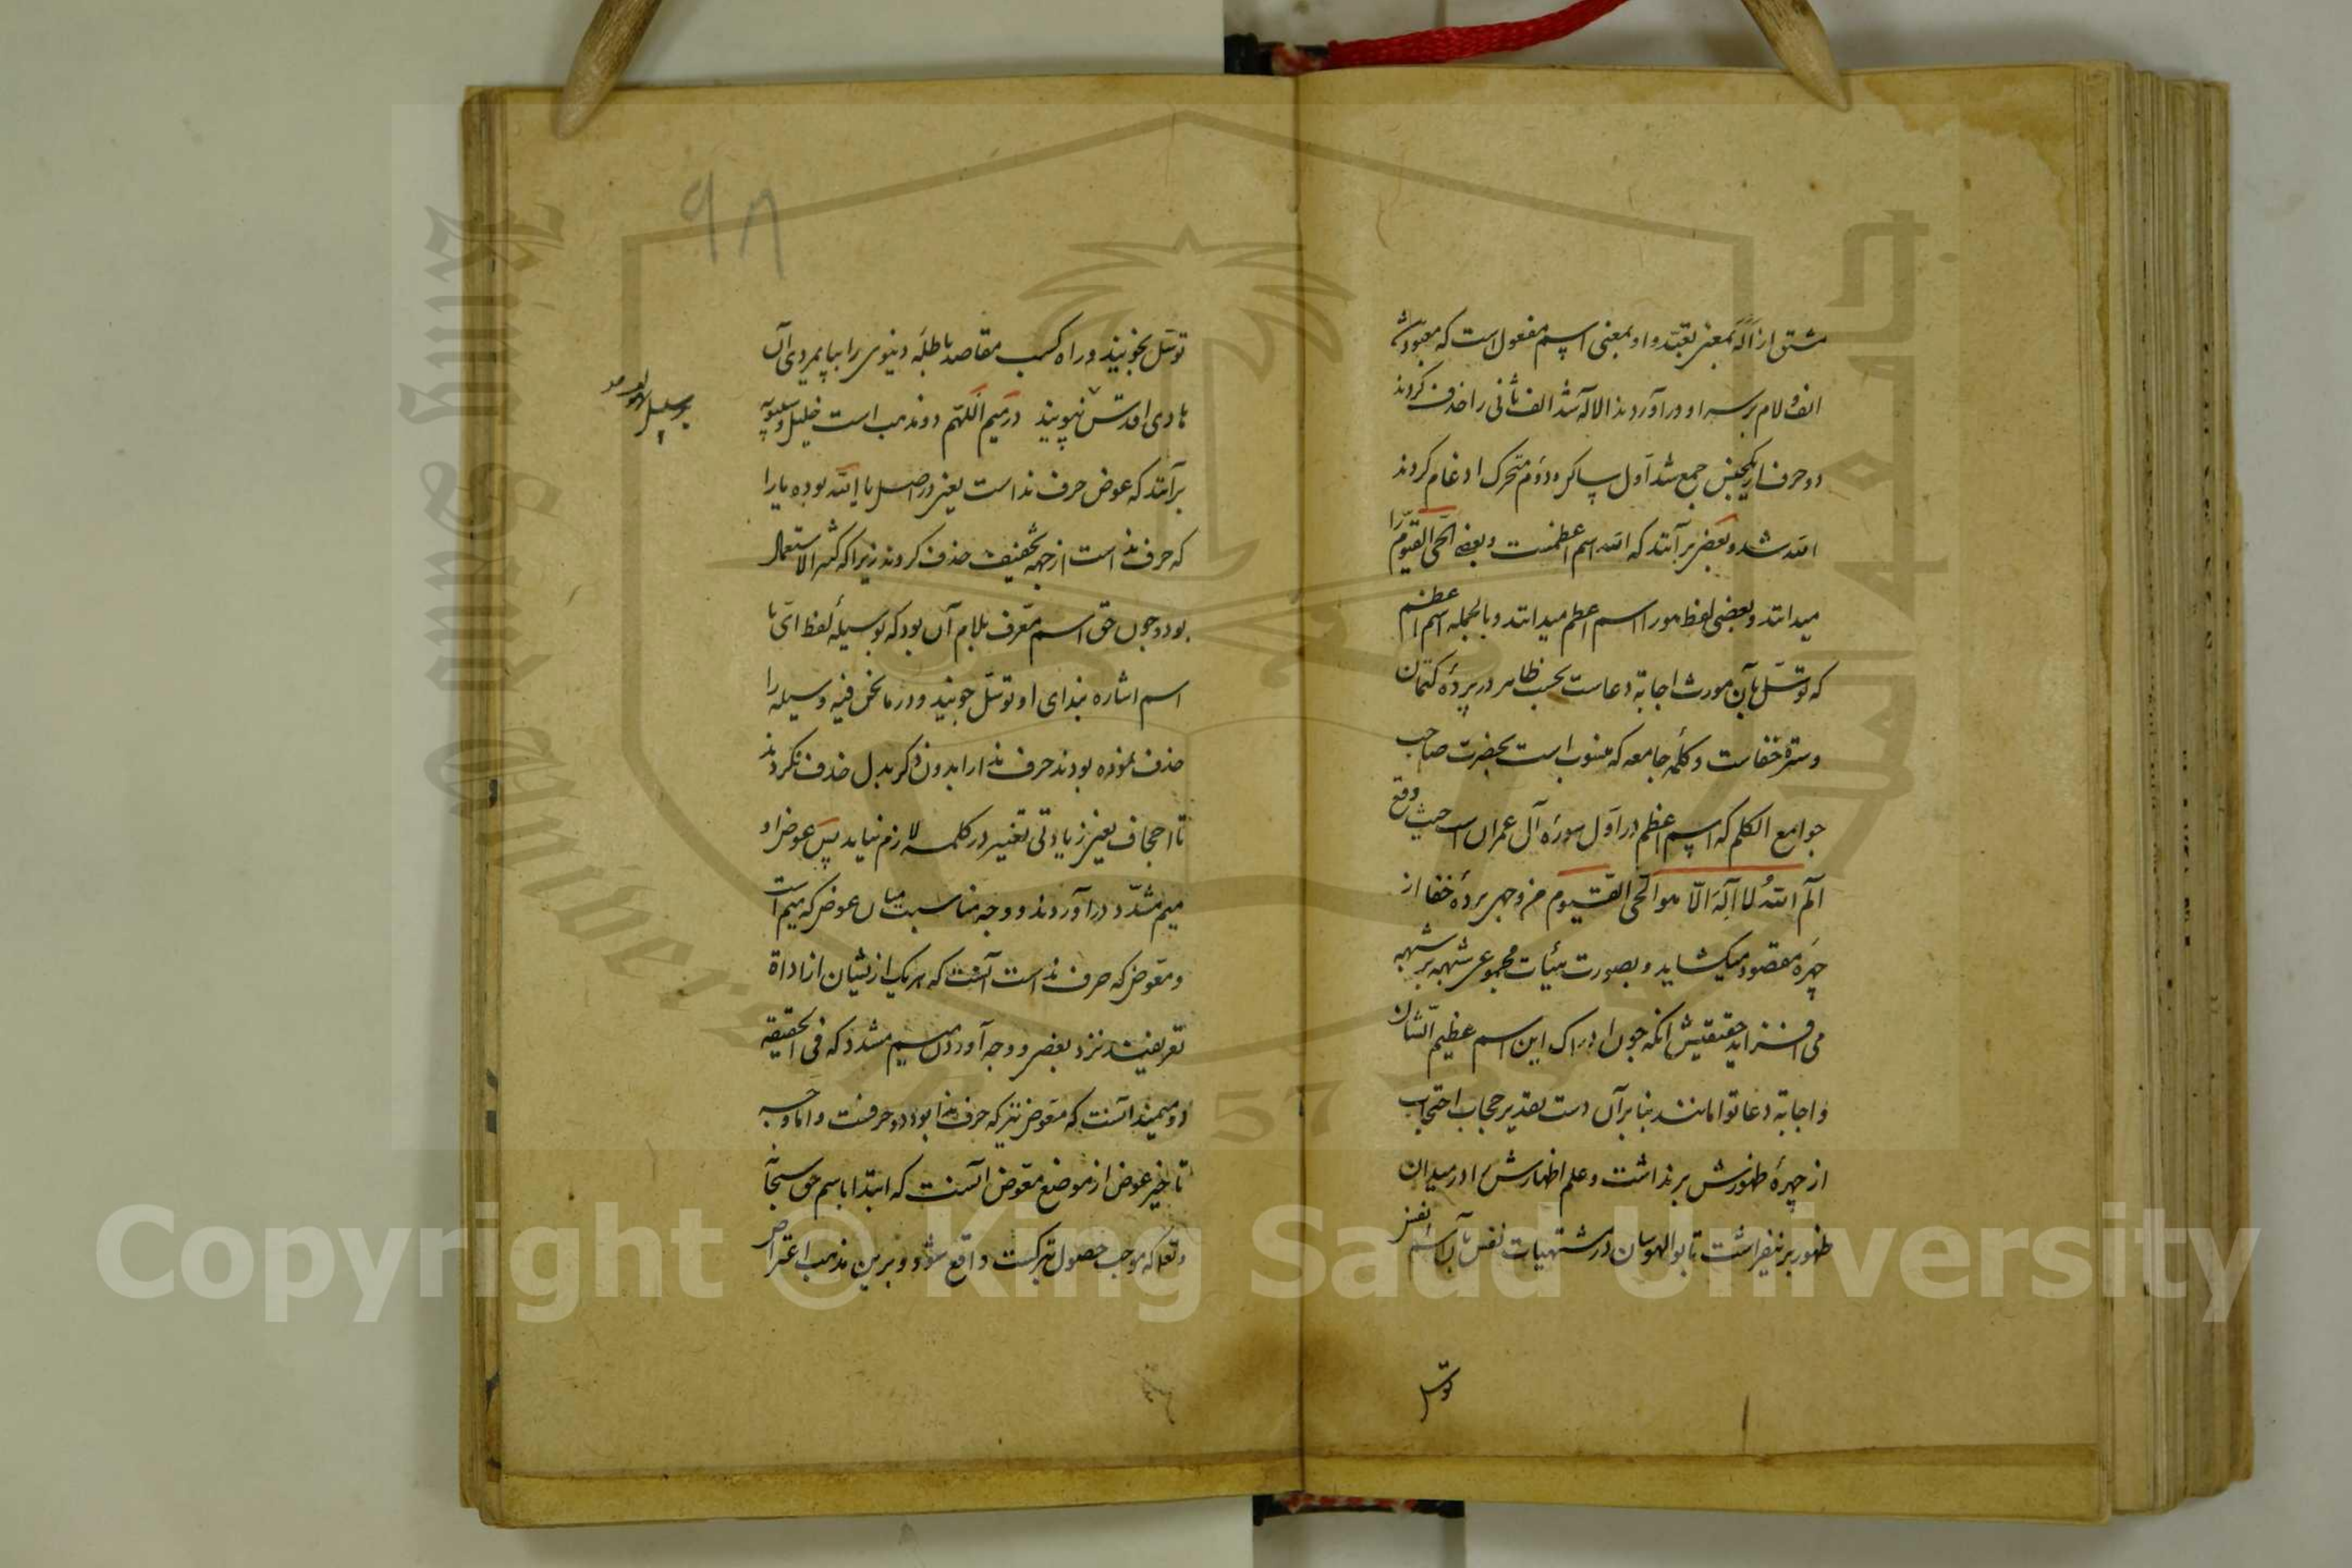 مشتق از اَلَهَ بمعنی تعبّد و او بمعنی اسم مفعول است که معبود باشد
الف و لام بر سر او در آوردند الالآه شد الف ثانی را حذف کردند
دو حرف از یکجنس جمع شد اوّل ساکن و دوّم متحرک ادغام کردند
الله شد و بعضی برآنند که الله اسم اعظمست و بعضی الحیّ القیّوم را
میدانند و بعضی لفظ هو را اسم اعظم میدانند و بالجمله اسم اعظم
که توسّل بآن مورث اجابة دعاست بحسب ظاهر در پردهٔ کتمان
و سترهٔ خفاست و کلمهٔ جامعه که منسوب است بحضرت صاحب
جوامع الکلم که اسم اعظم در اوّل سورهٔ آل عمران است حیث وقع
الٓم اللّه لا اله الّا هو الحیّ القیّوم من وجهی پردهٔ خفا از
چهرهٔ مقصود میکشاید و بصورت هیئات مجموعی شبهه بر شبهه
می افزاید حقیقتش آنکه چون ادراک این اسم عظیم الشان
و اجابة دعا توامانند بنابرآن دست تقدیر حجاب احتجاب
از چهرهٔ ظهورش برنداشت و علم اظهارش را در میدان
ظهور برنیفراشت تا بوالهوسان در مشتهیات نفس بآن اسم
توسّل
۹۸
توسّل نجویند و راه کسب مقاصد باطلهٔ دینوی را بپایمردی آن
هادی اقدس نپویند در میم اللّهمّ دو مذهب است خلیل و سیبویه
برآنند که عوض حرف نداست یعنی در اصل یا اللّه بوده یا را
که حرف نداست از جهة تخفیف حذف کردند زیرا که کثیر الاستعمال
بود و چون حق اسم معرّف بلام آن بود که بوسیلهٔ لفظ ایّ یا
اسم اشاره بندای او توسّل جویند و در ما نحن فیه وسیله را
حذف نموده بودند حرف ندا را بدون ذکر بدل حذف نکردند
تا احجاف یعنی زیادتی تغییر در کلمه لازم نیاید پس عوض او
میم مشدّد در آوردند و وجه مناسبت میان عوض که میم است
و معوّض که حرف نداست آنست که هر یک ازیشان از اداة
تعریفند نزد بعضی و وجه آوردن میم مشدد که فی الحقیقه
دو میمند آنست که معوّض نیز که حرف ندا بود دو حرفست و اما وجه
تاخیر عوض از موضع معوّض آنست که ابتدا باسم حق سبحانه
و تعالی که موجب حصول تبرکست واقع شود و برین مذهب اعتراض